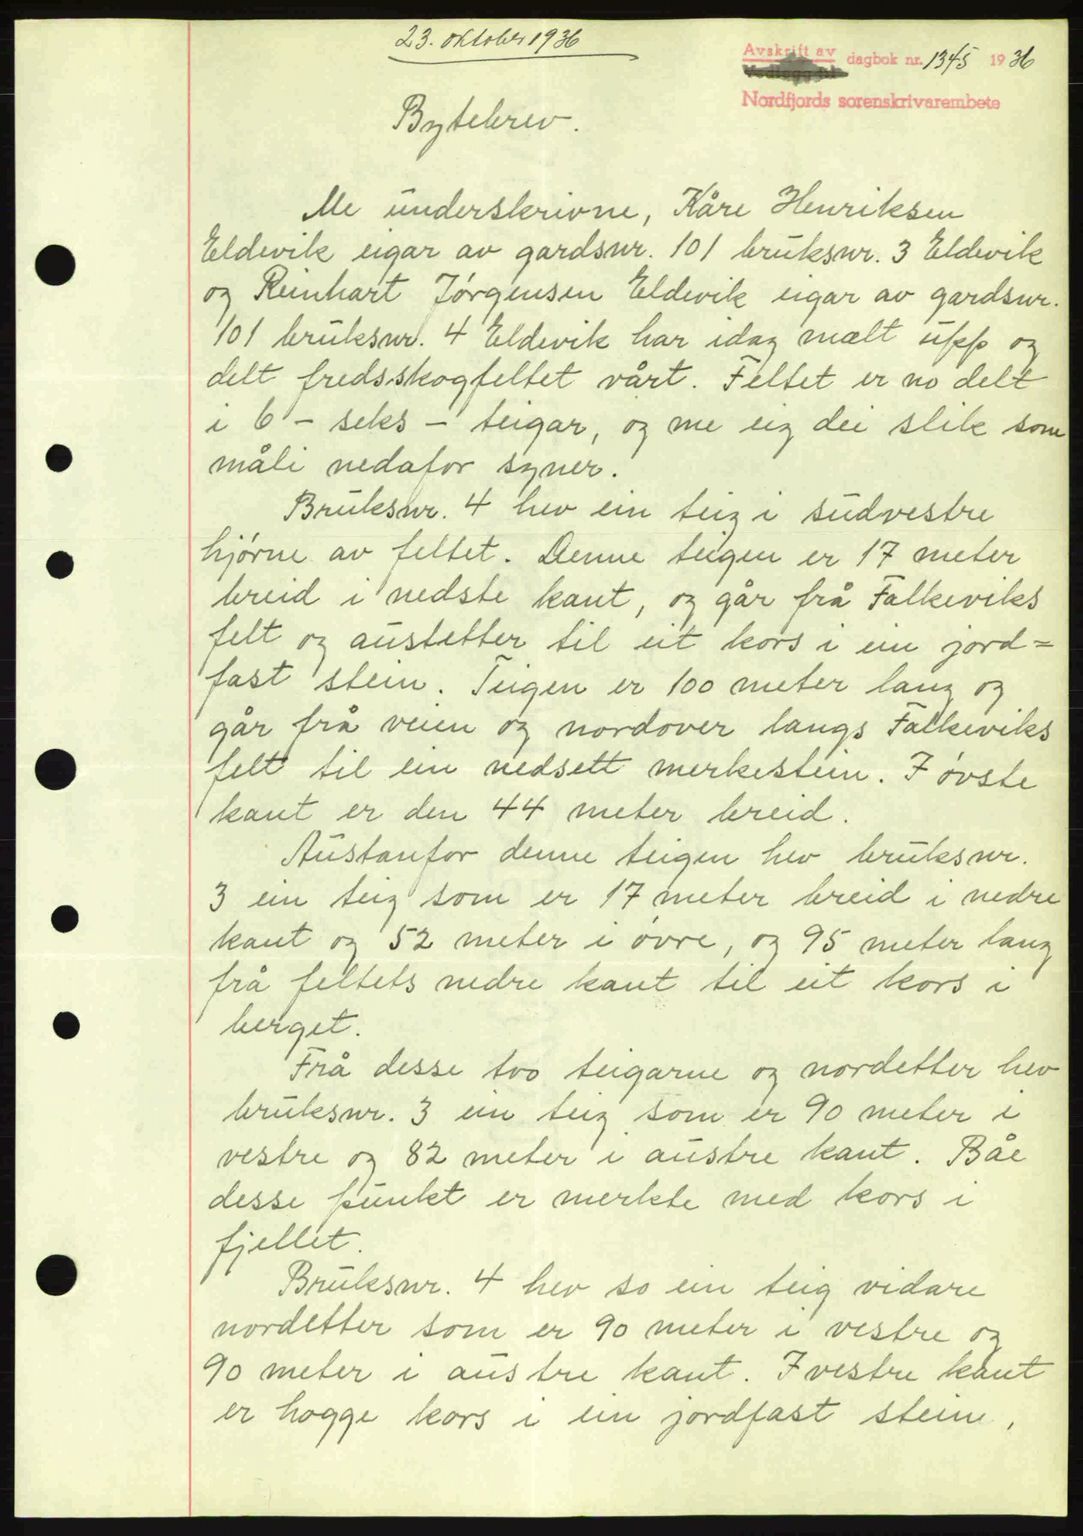 23. oktober 1936
Avskrift av
dagbok nr. 1345 1936
Nordfjords sorenskrivarembete
Bytebrev.
Me underskrivne, Kåre Henriksen
Eldevik eigar av gardsnr. 101 bruksnr. 3 Eldevik
og Reinhart Jørgensen Eldevik eigar av gardsnr.
101 bruksnr. 4 Eldevik har idag mælt upp og
delt fredsskogfeltet vårt. Feltet er no delt
i 6 - seks - teigar, og me eig dei slik som
måli nedafor syner.
Bruksnr. 4 hev ein teig i sudvestre
hjørne av feltet. Denne teigen er 17 meter
breid i nedste kant, og går frå Falkeviks
felt og austetter til eit kors i ein jord=
fast stein. Teigen er 100 meter lang og
går frå veien og nordover langs Falkeviks
felt til ein nedsett merkestein. I øvste
kant er den 44 meter breid.
Austanfor denne teigen hev bruksnr.
3 ein teig som er 17 meter breid i nedre
kant og 52 meter i øvre, og 95 meter lang
frå feltets nedre kant til eit kors i
berget.
Frå desse tvo teigarne og nordetter hev
bruksnr. 3 ein teig som er 90 meter i
vestre og 82 meter i austre kant. Båe
desse punkt er merkte med kors i
fjellet.
Bruksnr. 4 hev so ein teig vidare
nordetter som er 90 meter i vestre og
90 meter i austre kant. I vestre kant
er hogge kors i ein jordfast stein,